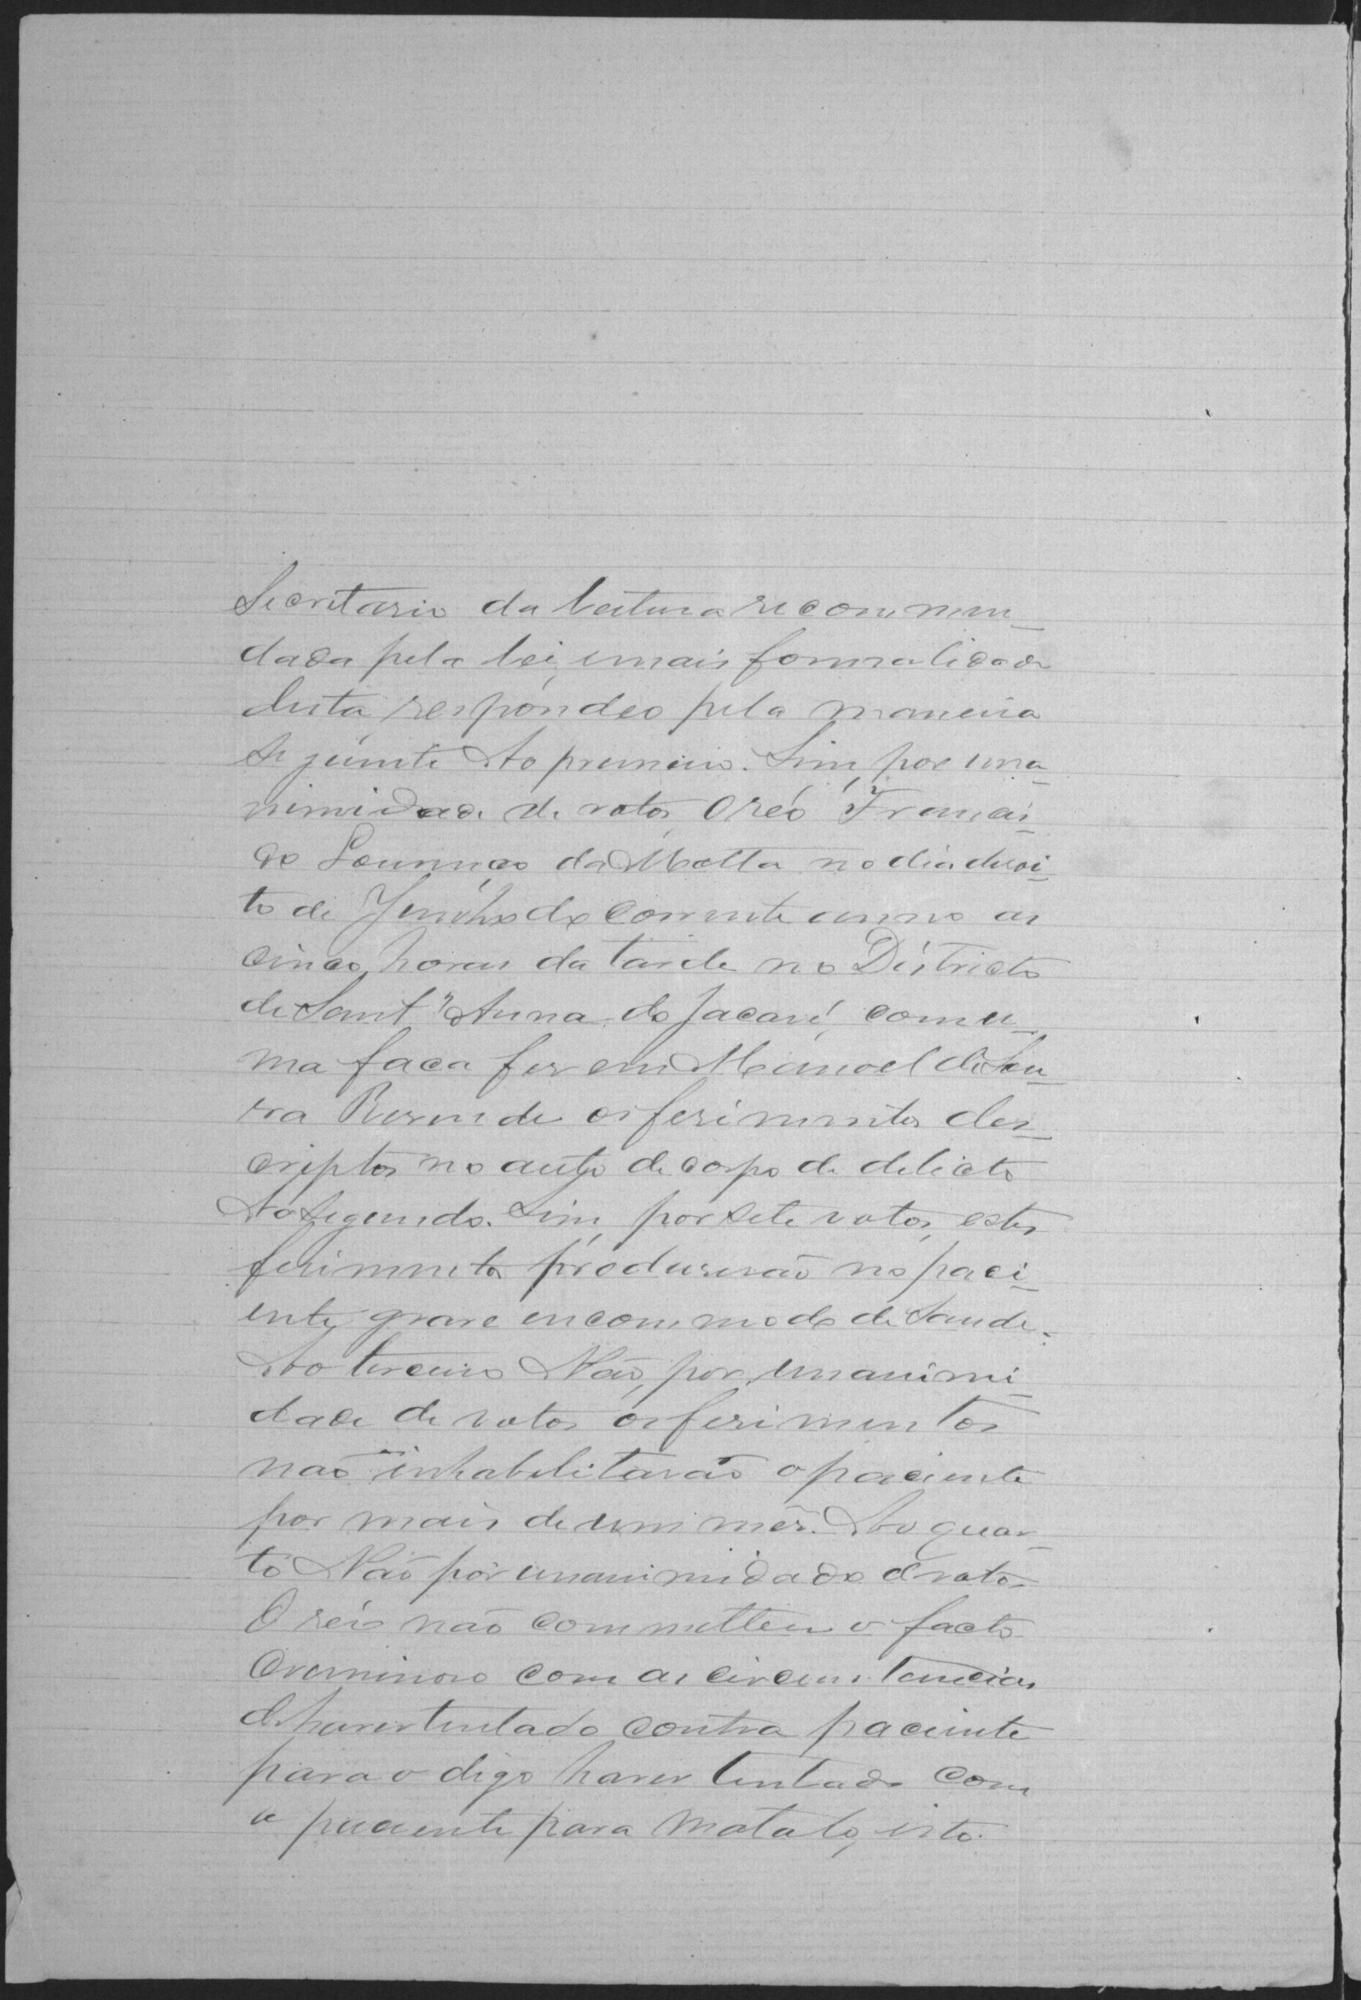 Secretario da leitura recommen-
dada pela lei, e mais formalidade
desta, respondeo pela maneira
seguinte Ao primeiro. Sim, por una-
nimidade de votos, o réo Francis-
co Lourenço da Motta no dia dezoi-
to de Junho do corrente anno as
cinco horas da tarde no Districto
de Sant'Anna do Jacaré, com u-
ma faca fez em Manoel
Rezende os ferimentos des-
criptos no auto de corpo de delicto
Ao segundo. Sim, por sete votos, estes
ferimentos produzirão no paci-
ente grave encommodo de Saude.
Ao terceiro Não, por unanimi-
dade de votos os ferimentos
não inhabilitarão o paciente
por mais de um mês. Ao quar-
to Não por unanimidade de votos
O réo não committeu o facto
criminoso com as circumstancias
de haver tentado contra paciente
para o digo haver tentado com
o paciente para matalo, isto